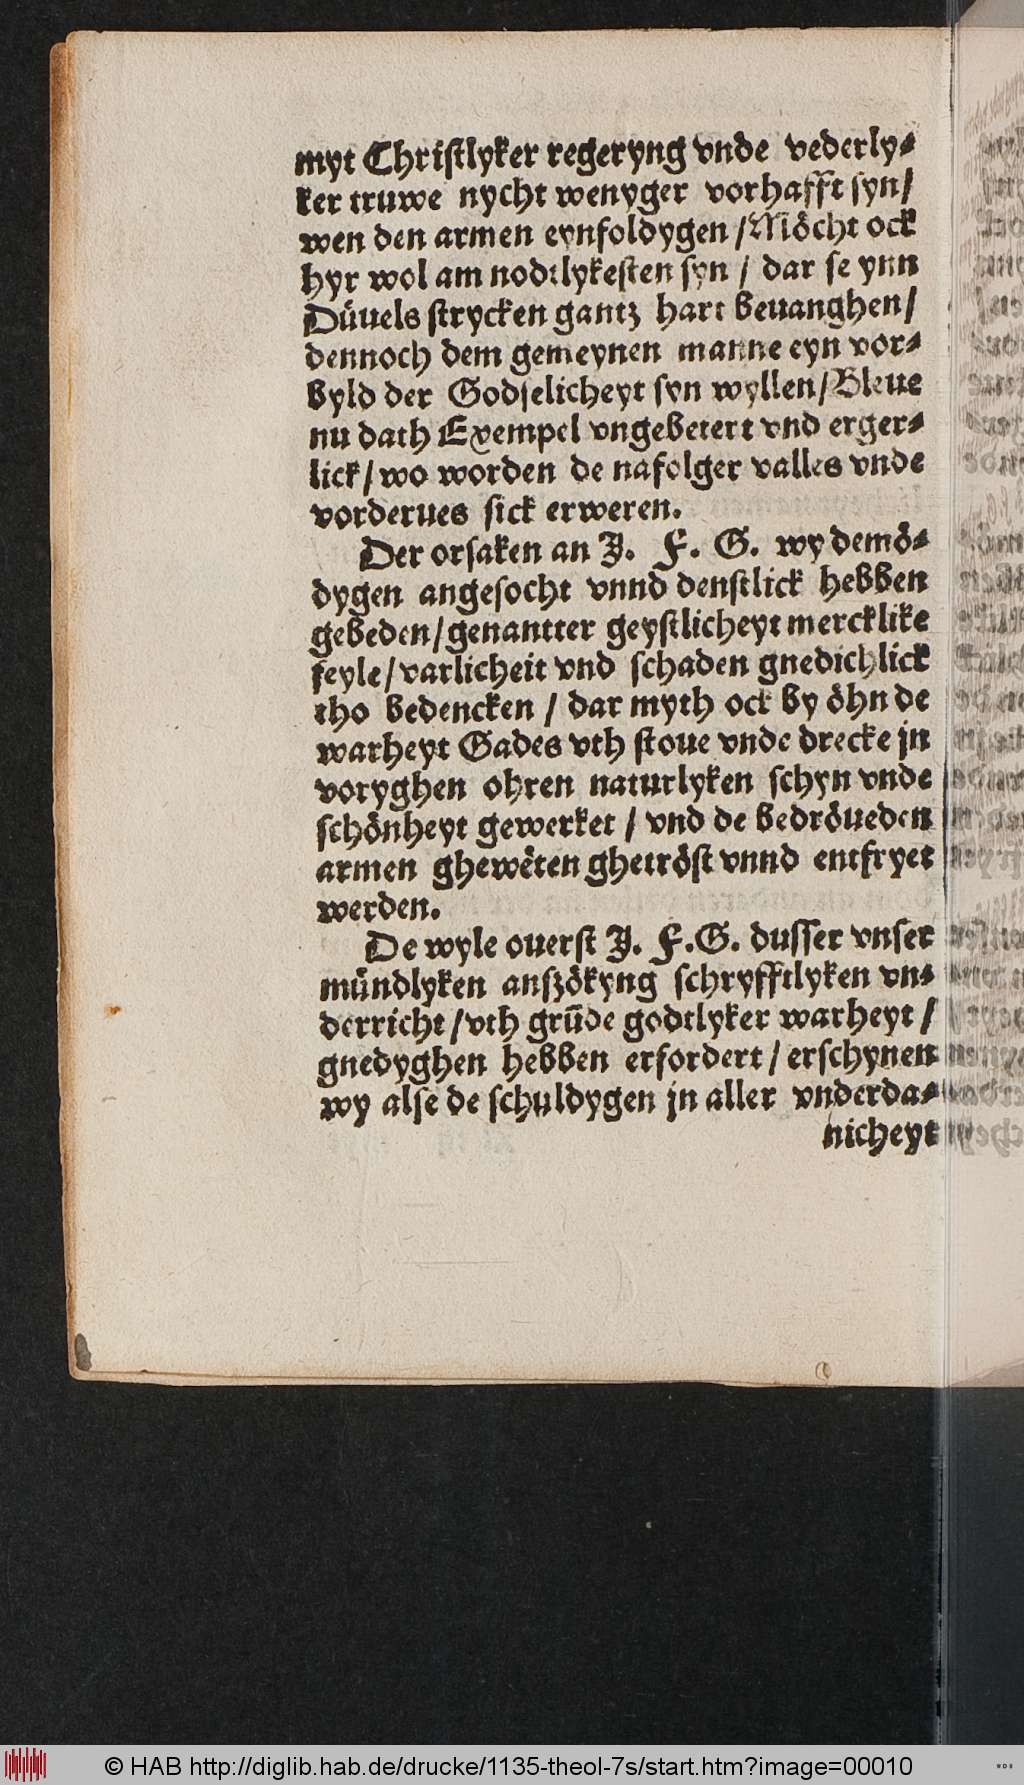 myt Christlyker regeryng vnde vederly⸗
ker truwe nycht wenyger vorhafft syn/
wen den armen eynfoldygen /Möcht ock
hyr wol am nodtlykesten syn / dar se ynn
Düuels strycken gantz hart beuanghen/
dennoch dem gemeynen manne eyn vor⸗
byld der Godselicheyt syn wyllen/Bleue
nu dath Exempel vngebetert vnd erger⸗
lick/wo worden de nafolger valles vnde
vorderues sick erweren.
Der orsaken an J. F. G. wy demö⸗
dygen angesocht vnnd denstlick hebben
gebeden/genantter geystlicheyt mercklike
feyle/varlicheit vnd schaden gnedichlick
tho bedencken / dar myth ock by öhn de
warheyt Gades vth stoue vnde drecke jn
voryghen ohren naturlyken schyn vnde
schönheyt gewerket / vnd de bedröueden
armen ghewëten ghetröst vnnd entfryet
werden.
De wyle ouerst J. F.G. dusser vnser
mündlyken anszökyng schryfftlyken vn⸗
derricht/vth grūde godtlyker warheyt /
gnedyghen hebben erfordert/erschynen
wy alse de schuldygen jn aller vnderda⸗
nicheyt
© HAB http://diglib.hab.de/drucke/1135-theol-7s/start.htm?image=00010